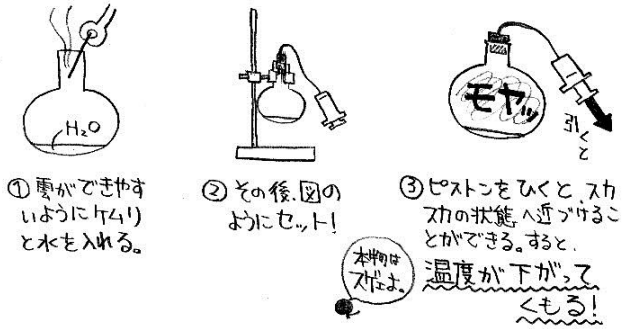 H₂O
① 雲ができやす
いようにケムリ
と水を入れる。
② その後、図の
ようにセット！
モヤッ
引くと
③ ピストンをひくと、スカ
スカの状態へ近づけるこ
とができる。すると、
温度が下がって
くもる！
スゲェよ。